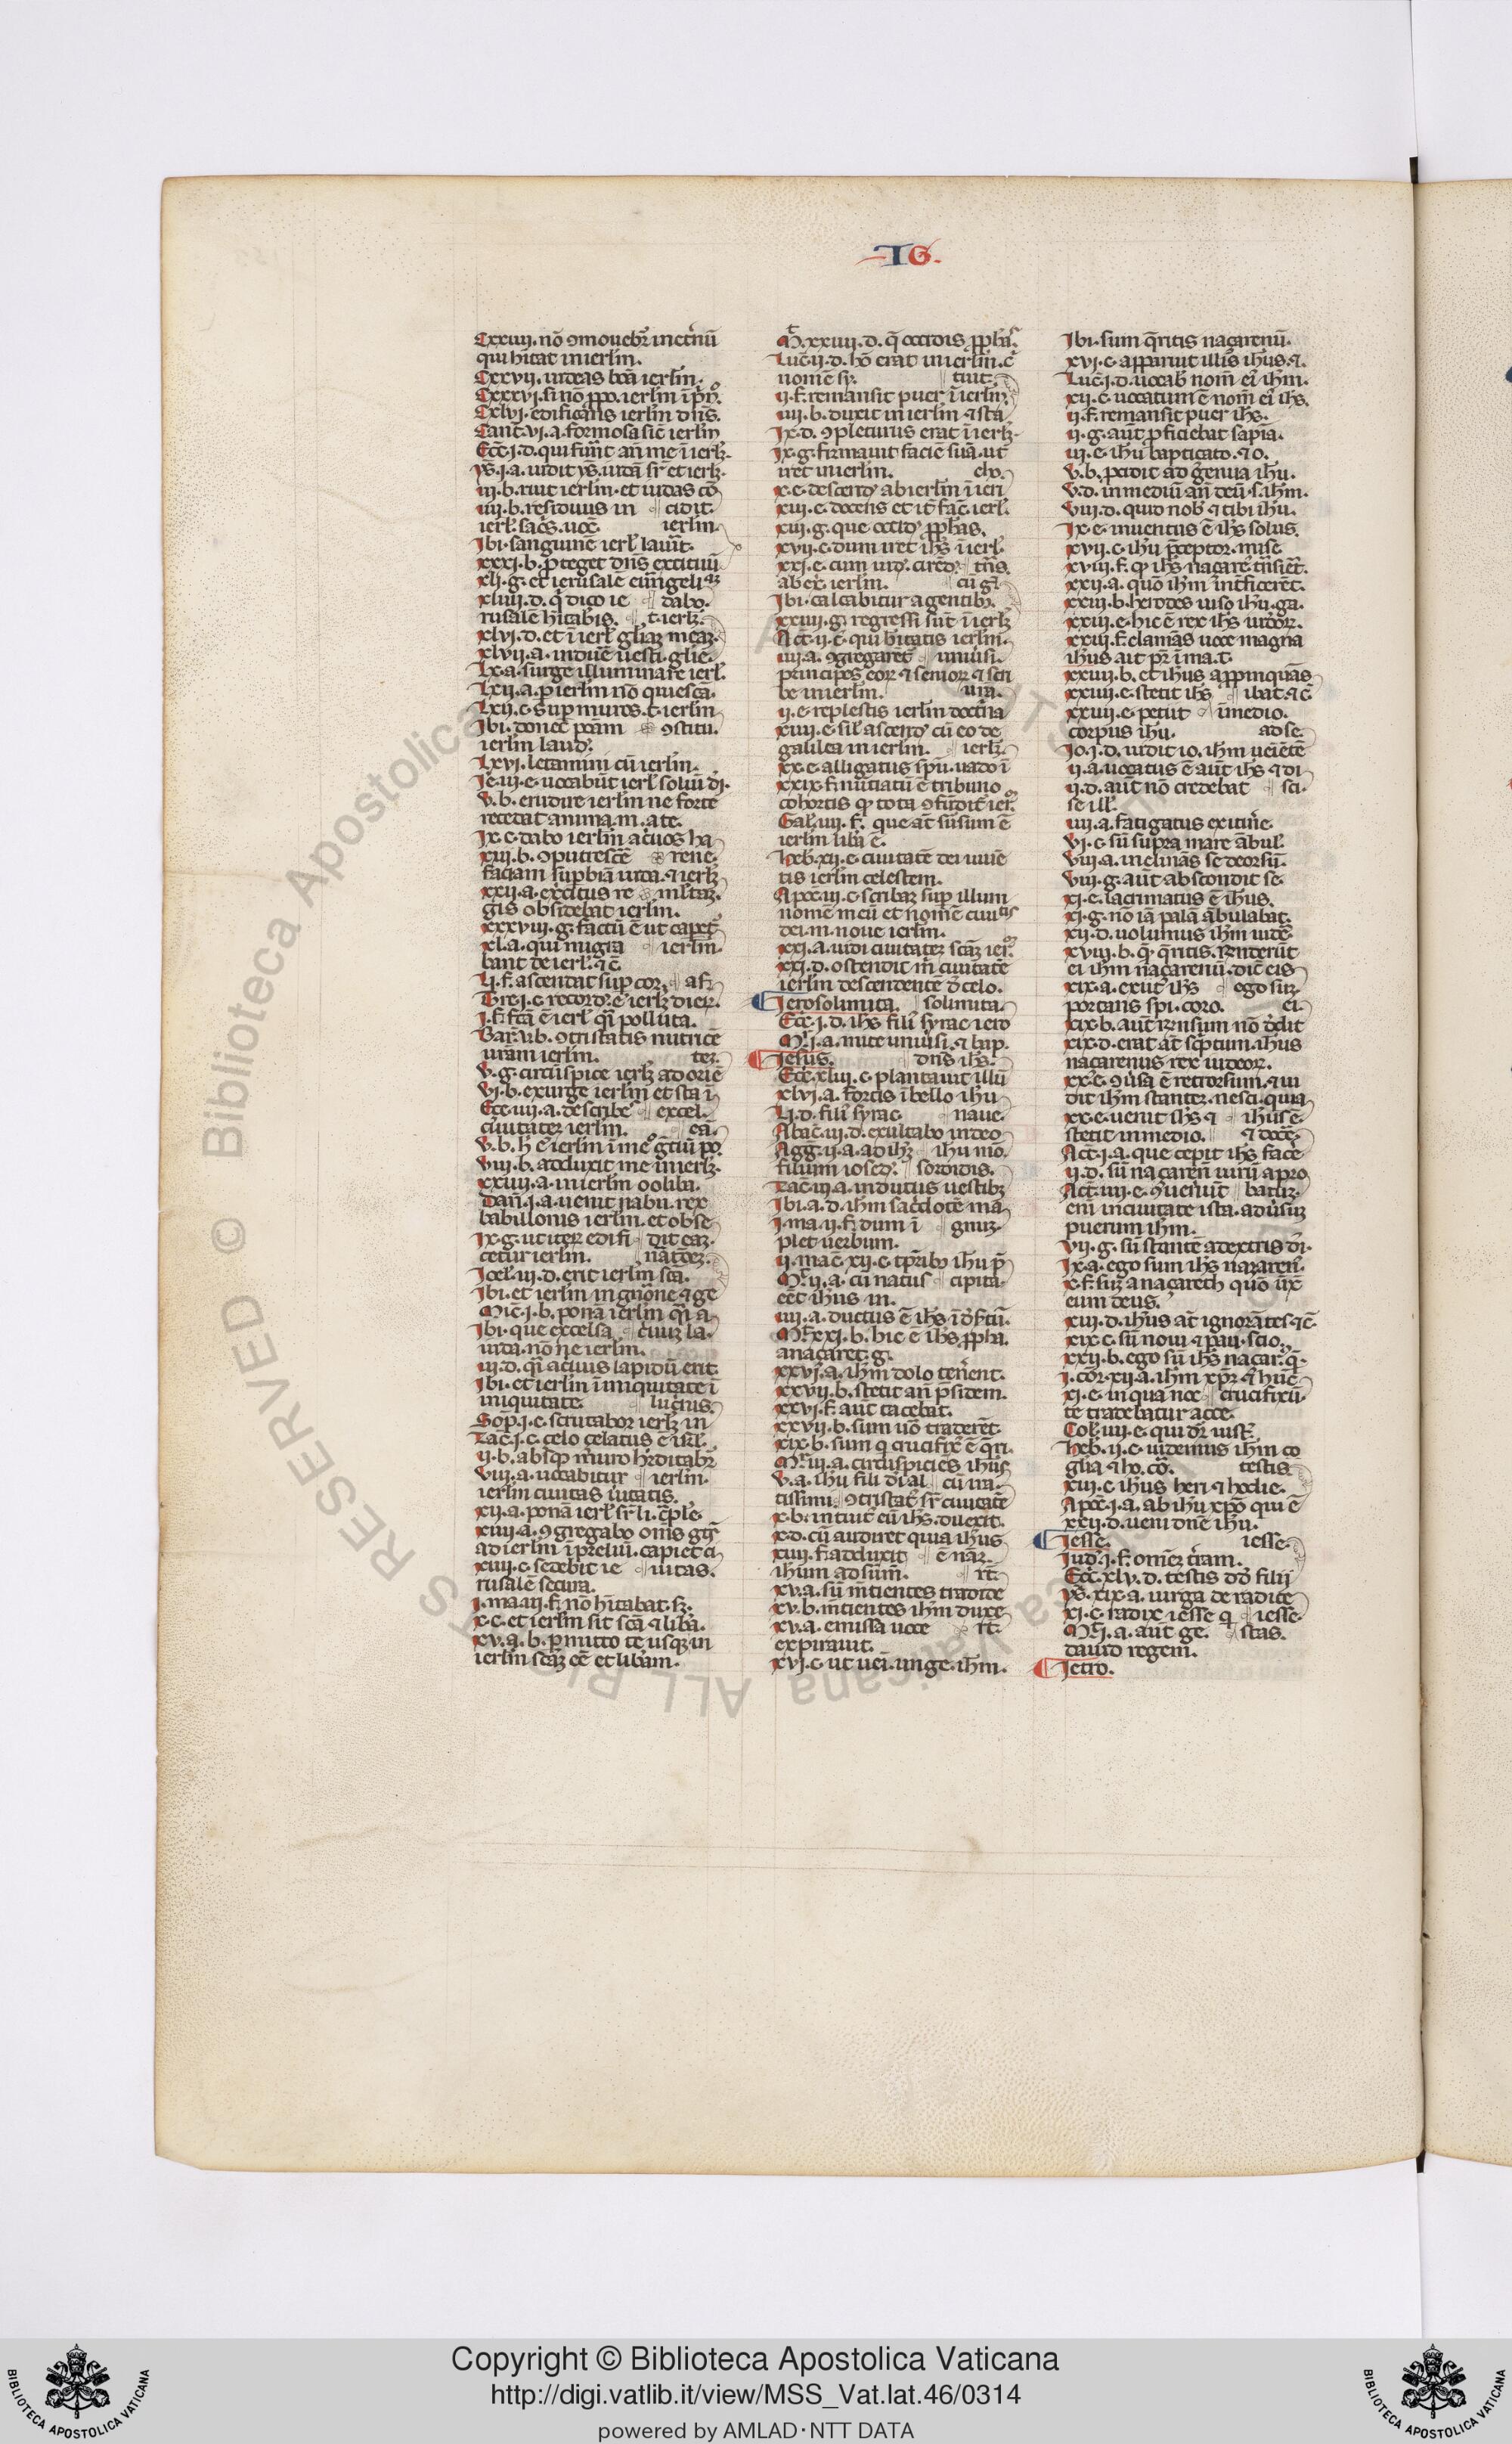 IG.
Cxxiiii. nō ꝯmouebr̄ inet'nū
qui hītat inierlm̄.
Cxxvii. uideas bōa ierlm̄.
Cxxxvi. si nō ꝓpo. ierlm̄ ī pn̄º.
Cxlvi. edificans ierlm̄ dn̄s.
Cant̄. vi. a. formosa sic̄ ierlm̄
Ecc̄. i. d. qui fuīt an̄ me ī ierlꝫ.
ys̄. i. a. uidit ys̄. uidā sr̄ et ierlꝫ.
iii. b. ruit ierlm̄. et iudas cō
iiii. b. residuus in cidit.
ierl̄. sac̄s. uoc̄. ierlm̄.
Ibi. sanguinē ierl̄ lauīt.
xxxi. b. ꝓteget dn̄s excituū
xli. g. et ierusalē euu̅geliꝫ
xliiii. d. q̄ dico ie dabo.
rusalē hītabis. t. ierlꝫ.
xlvi. d. et ī ierl̄ gl̄iaꝫ meaꝫ.
xlvii. a. induē uesti. glīe.
lx. a. surge illuminare ierl̄.
lxii. a. ꝓ ierlm̄ nō quiescā.
lxii. c. suꝑ muros. t. ierlm̄
Ibi. donec̄ ponām ꝯstitu.
ierlm̄ laud'.
lxvi. letamini cū ierlm̄.
Ie. iii. e. uocabūt ierl̄ soliū dī.
v. b. erudire ierlm̄ ne forte
recedat anima. m. a te.
ix. c. dabo ierlm̄ aceruos ha
xiii. b. ꝯputrescē rene.
faciam suꝑbiā iuda. ⁊ ierlꝫ
xxii. a. exercitus re ml̄taꝫ.
gis obsidebat ierlm̄.
xxxviii. g. factū ē ut caperet̄
xl. a. qui migra ierlm̄.
bant de ierl̄. ⁊c̄.
li. f. ascendat suꝑ cor. as̄.
Tre. i. c. recordᵒ. ē ierlꝫ dieꝝ.
i. f. fc̄a ē ierl̄ q̄i polluta.
Bar̄. v. b. ꝯtristatis nutricē
uram ierlm̄. teꝫ.
v. g. circūspice ierlꝫ ad oriē
vi. b. exurge ierlm̄ et sta ī
Ece. iiii. a. describe excel.
ciuitateꝫ ierlm̄. eā.
v. b. h̄ ē ierlm̄ ī meᵒ gētiū po.
viii. b. adduxit me inierlꝫ.
xxiiii. a. in ierlm̄ ooliba.
Dan̄. i. a. uenit nabu. rex
babilonis ierlm̄. et obse
ix. g. ut iteꝝ edifi dit eaꝫ.
cetur ierlm̄. nātōeꝫ.
Ioel̄. iii. d. erit ierlm̄ sc̄a.
Ibi. et ierlm̄ in gn̄one ⁊ ge
Mic̄. i. b. ponā ierlm̄ q̄i a
Ibi. que excelsa ceruū la.
iuda. nōne ierlm̄.
iii. d. q̄i aceruus lapidū erit.
Ibi. et ierlm̄ ī iniquitate ī
iniquitate. luctus.
Sop̄. i. e. scrutaboꝛ ierlꝫ in
Zac̄. i. c. celo celatus ē isrl̄.
ii. b. absqꝫ muro hīditabr̄
viii. a. uocabitur ierlm̄.
ierlm̄ ciuitas ueitatis.
xii. a. ponā ierl̄ sr̄ li. c̄ple.
xiiii. a. ꝯgregabo om̄s gēs
ad ierlm̄ ī preliū. capiet̄ ci
xiiii. c. sedebit ie uitas.
rusalē secura.
i. ma. iii. f. nō hītabat̄. sꝫ.
x. c. et ierlm̄ sit sc̄ā ⁊ libā.
xv. a. b. ꝑmitto te usqꝫ in
ierlm̄ sc̄aꝫ eē et libām.
M̄. xxiiii. d. q̄ occidis ꝓph̄as.
Luc̄. ii. d. hō erat in ierlm̄. c̄
nomē sȳ. tiuit.
ii. f. remansit puer ī ierlm̄.
iiii. b. duxit in ierlm̄ ⁊ sta
ix. d. ꝯpleturus erat ī ierlꝫ.
ix. g. firmauit faciē suā. ut
iret in ierlm̄. cho.
x. e. descendᵒ ab ierlm̄ ī ieri
xiii. e. docens et it̄ fac̄. ierl̄.
xiii. g. que occidᵒ ꝓph̄as.
xvii. c. dum iret ihs̄ ī ierl̄.
xxi. e. cum uidᵒ. circdᵒ. tn̄s.
ab ex̄. ierlm̄. cū gl̄.
Ibi. calcabitur a gentibꝫ.
xxiiii. g. regressi sūt ī ierlꝫ
Act̄. ii. c̄. qui hītatis ierlm̄.
iiii. a. ꝯgregaret̄ uniuersi.
principes eoꝝ ⁊ senioꝝ ⁊ scri
be in ierlm̄. ura.
ii. e. replestis ierlm̄ doctrīa
xiii. e. sil̄ ascendᵒ cū eo de
galilea in ierlm̄. ierlꝫ.
xx. e. alligatus spū. uado ī
xxix. f. nūtiatū ē tribuno
cohortis ꝙ tota ꝯfūdit̄ ier̄.
Gal̄. iiii. f. que at̄ sūsum ē
ierlm̄ libā ē.
Heb̄. xii. e. ciuitatē dei uiuē
tis ierlm̄ celestem.
Apoc̄. iii. c. scribaꝫ suꝑ illum
nomē meū et nomē ciuitatis
dei. m. noue ierlm̄.
xxi. a. uidi ciuitateꝫ sc̄aꝫ ier̄.
xxi. d. ostendit m̄ ciuitatē
ierlm̄ descendentē d̄ celo.
Ierosolimita. solimita.
Ecc̄. i. d. ihs̄ fili' syrac iero
M̄r. i. a. mite uniuersi. ⁊ bap.
Iesus. dn̄s ihs̄.
Ecc̄. xliii. c. plantauit illū
xlvi. a. fortis ī bello ihu̅
li. d. fili' syrac naue.
Abac̄. iii. d. exultabo in deo
Agg̅. ii. a. ad ihꝫ ihu̅ mō.
filium iosedᵒ. sordidis.
Zac̄. iii. a. indutus uestibꝫ
Ibi. a. d. ihm̄ sacdotē ma
i. ma. ii. f. dum ī gnuꝫ.
plet uerbum.
ii. mac̄. xii. c. tꝑibꝰ ihu̅ p̄
M̄t. ii. a. cū natus cipita
eēt ihus̄ in.
iiii. a. ductus ē ihs̄ ī d̄sertū.
M̄t. xxi. b. hic ē ihs̄ ꝓph̄a.
a naçaret. g.
xxvi. a. ihm̄ dolo ten̄ent.
xxvii. b. stetit an̄ p̄sidem.
xxvi. f. aut̄ tacebat.
xxvii. b. sum uō traderēt.
xix. b. sum q crucifix' ē q̄ri.
M̄r. iii. a. circūspiciēs ihus̄
v. a. ihu̅ fili dī al cū ira
tissimi. ꝯtristatᵒ sr̄ ciuitatē
x. b. intuit' eū ihs̄. duexit.
x. d. cū audiret quia ihus̄
xiiii. f. adduxit̄ ē nāꝝ.
ihum ad sūm̄. rt̄.
xv. a. sū m̄tientes tradide
xv. b. m̄tientes ihm̄ duxe
xv. a. emissa uoce rt̄.
expirauit.
xvi. c. ut uēi. ungē. ihm̄.
Ibi. sum q̄ritis naçarenū.
xvi. c. apparuit illis ihus̄. ⁊.
Luc̄. i. d. uocab' nom̄ ei' ihm̄.
xii. c̄. uocatum ē nom̄ ei' ihs̄.
ii. f. remansit puer ihs̄.
ii. g. aut̄ ꝓficiebat sapīa.
iii. e. ihu̅ baptiçato. ⁊ o.
v. b. ꝓcidit ad genua ihu̅.
v. d. in mediū an̄ eū. s. ihm̄.
viii. d. quid nob' ⁊ tibi ihu̅.
ix. e. inuentus ē ihs̄ solus.
xvii. c. ihu̅ p̄ceptor. mise
xviii. f. ꝙ ihs̄ naçare' tn̄siret̄.
xxii. a. quō ihm̄ int̄ficerēt.
xxiii. b. herodes uiso ihu̅. ga.
xxiii. e. hic ē rex ihs̄ iudeoꝝ.
xxiii. f. clamās uoce magna
ihus̄ ait pr̄ ī ma. t.
xxiiii. b. et ihus̄ appinquās
xxiiii. e. stetit ihs̄ ibat ⁊ c̄
xxiiii. e. petiit īmedio.
corpus ihu̅. ad se.
Io. i. d. uidit io. ihm̄ ueietē
ii. a. uocatus ē aut̄ ihs̄ ⁊ di
ii. d. aut̄ nō credebat sci.
se ill̄.
iiii. a. fatigatus ex itin̄e.
vi. c. sū supra mare ābul̄.
viii. a. inclinās se deorsū.
viii. g. aut̄ abscondit se.
xi. e. lacrimatus ē ihus̄.
xi. g. nō iā palā ābulabat.
xii. d. uolumus ihm̄ uidē.
xviii. b. q̄ q̄ritis. Rn̄derūt
ei ihm̄ naçarenū. dic̄ eis
xix. a. exiit ihs̄ ego suꝫ.
portans spi. coro. ei.
xix. b. aut̄ rn̄sum nō d̄dit
xix. d. erat at̄ sc̄ptum. ihus̄
naçarenus rex iudeoꝝ.
xx. c. ꝯu'sa ē retrorsum. ⁊ ui
dit ihm̄ stanteꝫ. nesci. quia
xx. e. uenit ihs̄ ⁊ ihus̄ ē
stetit in medio. ⁊ docē.
Act̄. i. a. que cepit ihs̄ facē
ii. d. sū naçaren̄ uirū a pro
Act̄. iiii. e. ꝯuen̄ūt batuꝫ.
eni in ciuitate ista. aduersuꝫ
puerum ihm̄.
vii. g. sū stantē a dextris dī.
ix. a. ego sum ihs̄ naçaren̄.
x. f. suꝫ a naçareth quō ūx̄
eum deus.
xiii. d. ihus̄ at̄ ignorātes. ⁊c̄.
xix. c. sū noui ⁊ pau'. scio.
xxii. b. ego sū ihs̄ naçar̄. q̄.
i. cor̄. xii. a. ihm̄ xpꝫ ⁊ hūc
xi. e. in qua nocte crucifixū.
te tradebatur acce.
Col̄. iiii. c. qui dr̄ iust'.
Heb̄. ii. c. uidemus ihm̄ co
gl̄ia ⁊ ho. cō. testis.
xiii. c. ihus̄ heri ⁊ hodie.
Apoc̄. i. a. ab ihu̅ xpō qui ē
xxii. d. ueni dn̄e ihu̅.
Iesse. iesse.
Iud̄. i. f. om̄eꝫ t̄ram.
Ecc̄. xlv. d. testis d̄d filii
ys̄. xix. a. uirga de radice
xi. c. radix iesse q iesse.
M̄t. i. a. aut̄ ge. stas.
dauid regem.
Ietro.
Copyright © Biblioteca Apostolica Vaticana
http://digi.vatlib.it/view/MSS_Vat.lat.46/0314
powered by AMLAD·NTT DATA
BIBLIOTECA APOSTOLICA VATICANA
BIBLIOTECA APOSTOLICA VATICANA